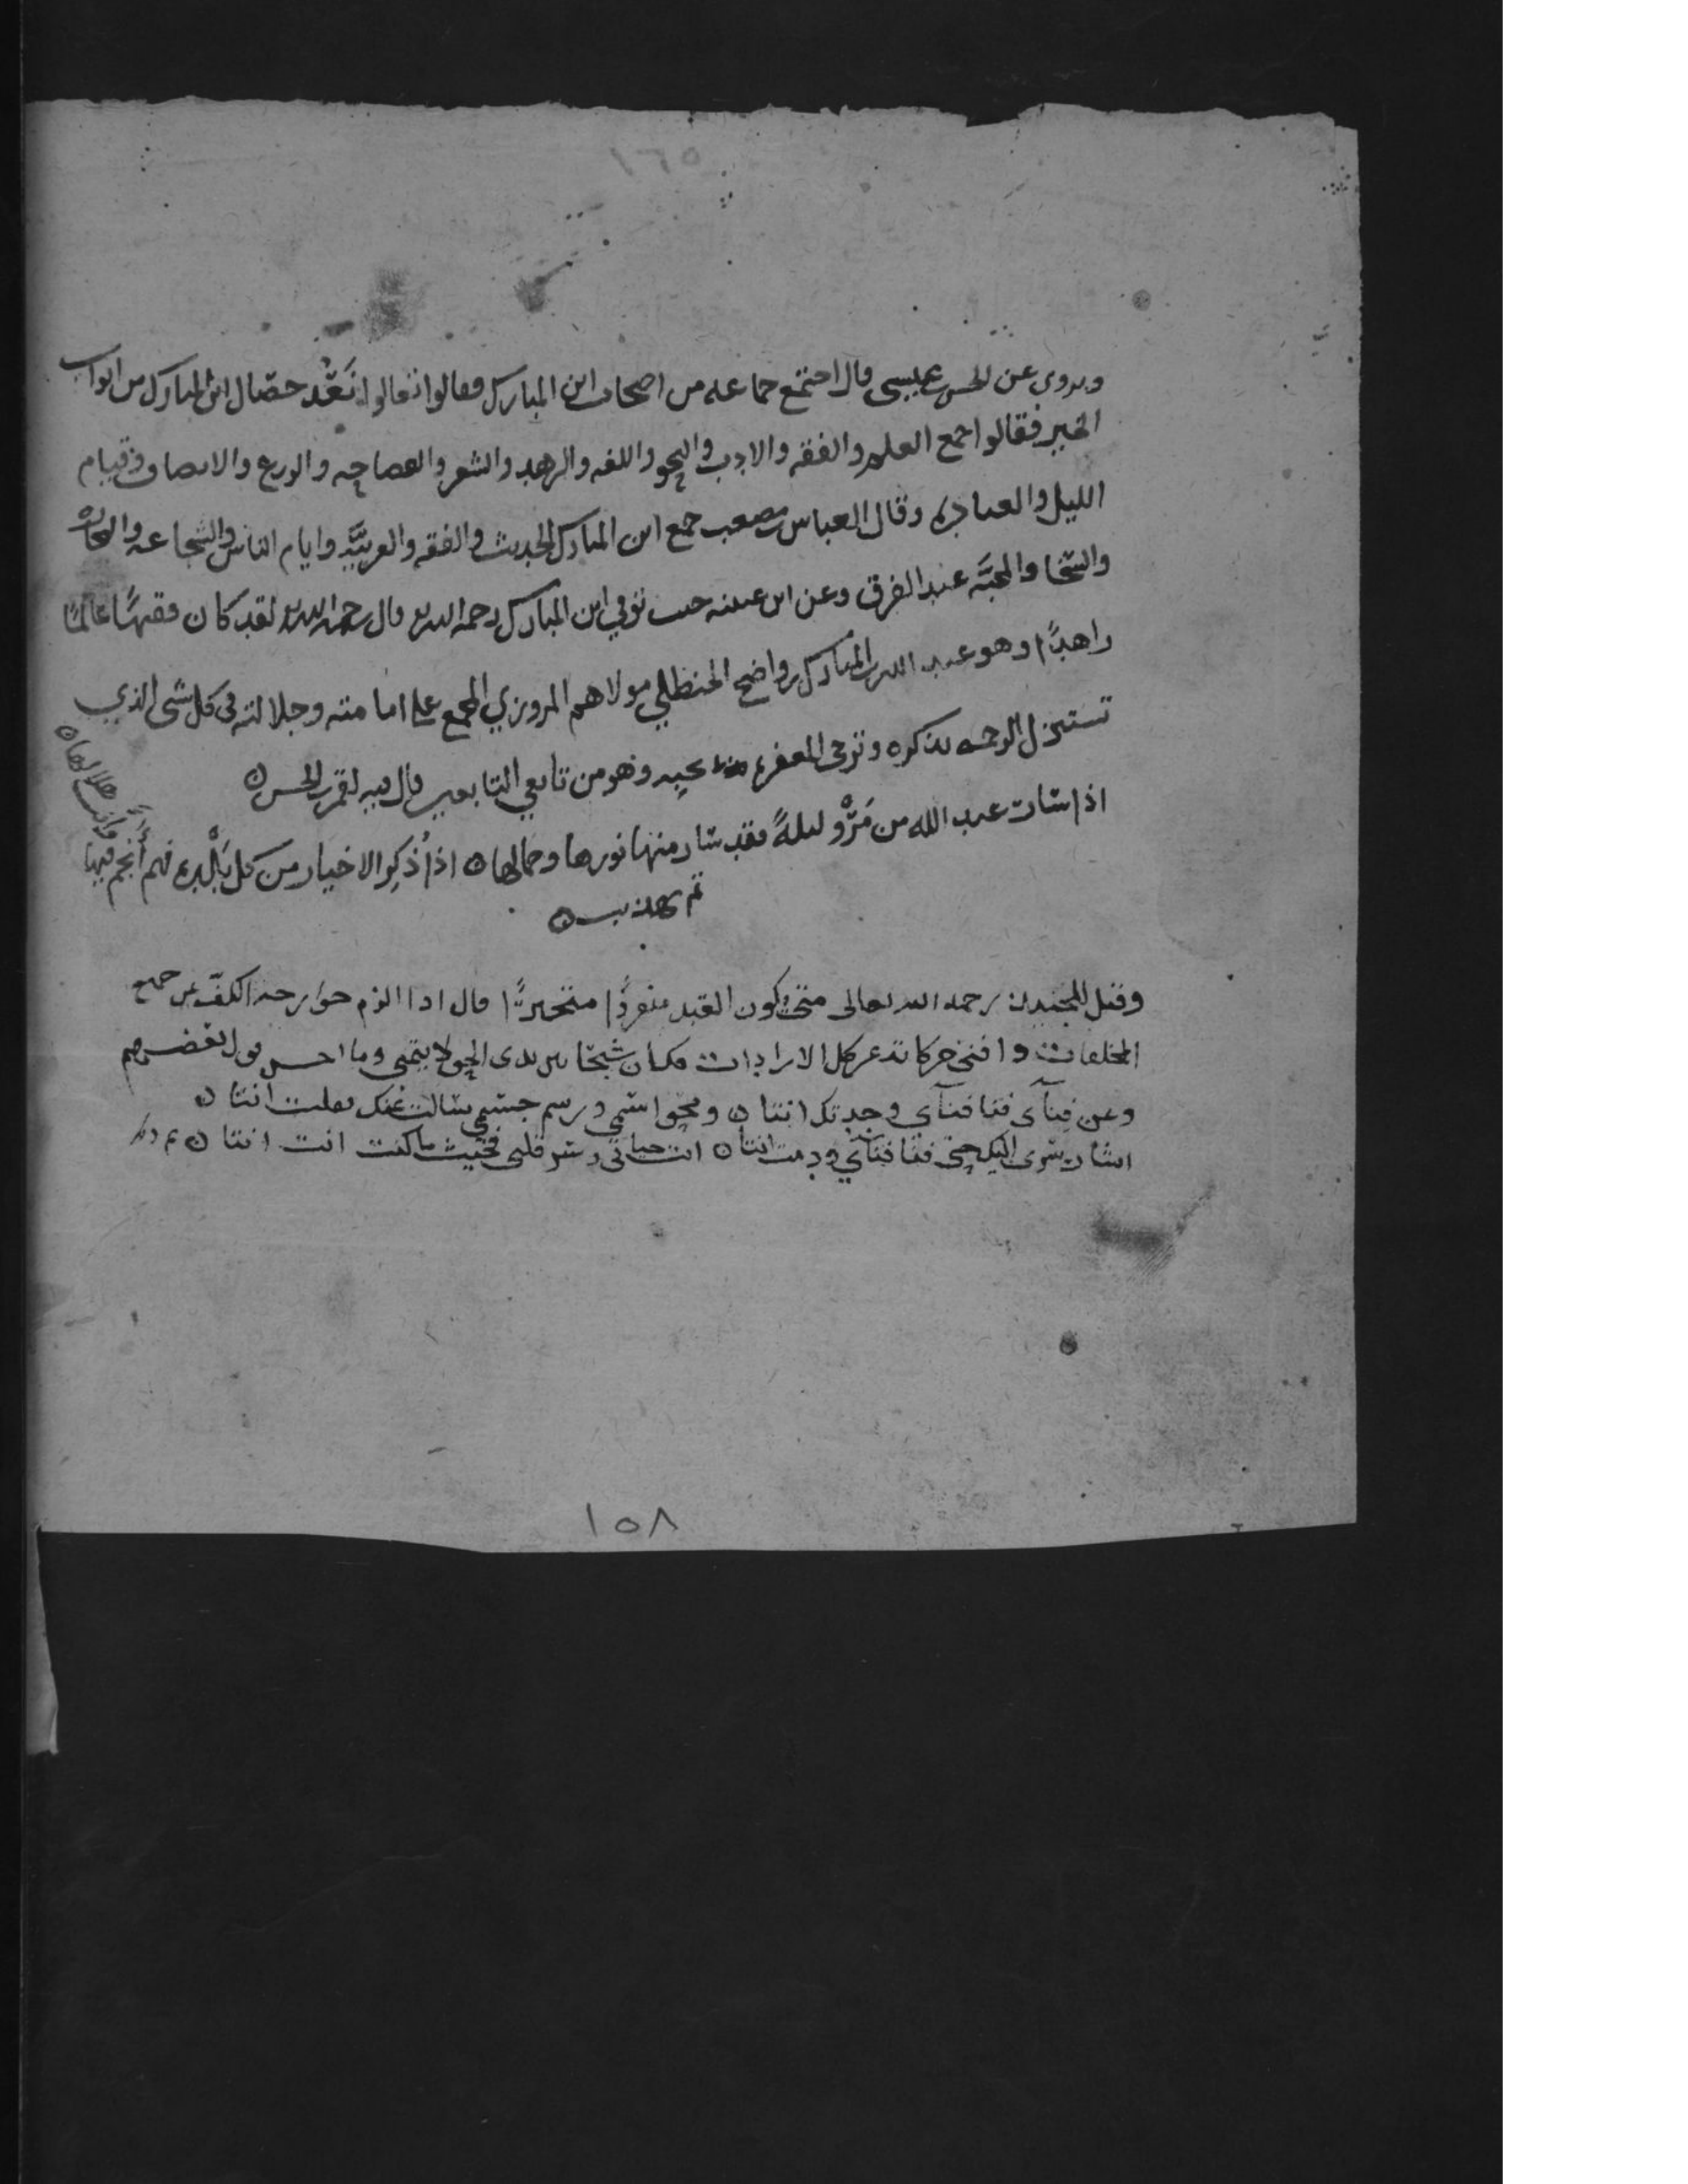 ١٦٥
ويروى عن الحسن بن عيسى قال اجتمع جماعه من اصحاب ابن المبارك فقالوا تعالوا نَعُدّ خصال ابن المبارك من ابواب
الخير فقالوا جمع العلم والفقه والادب والنحو واللغه والزهد والشعر والفصاحه والورع والانصاف وقيام
الليل والعبادة وقال العباس بن مصعب جمع ابن المبارك الحديث والفقه والعربيَّه وايام الناس والشجاعه والتجاره
والسخا والمحبَّه عند الفرق وعن ابن عيينه حين توفي ابن المبارك رحمه الله قال رحمه الله لقد كان فقيهًا عالمًا
زاهدًا وهو عبد الله بن المبارك بن واضح الحنظلي مولاهم المروزي المجمع على امامته وجلالته في كل شى الذي
تستنزل الرحمه بذكره وترجى المغفره بحبه وهو من تابعي التابعين قال فيه القمر الحسن
اذا سار عبد الله من مَرْو ليلةً فقد سار منها نورها وجمالها اذا ذُكِر الاخيار من كل بَلْدة فهم أَنجم فيها
وانت هلالها
تم تهذيب
وقيل للجنيد رحمه الله تعالى متى يكون العبد منفردًا متحيرًا قال اذا الزم جوارحه الكفّ عن جميع
المخلفات وافنى حركاته عن كل الارادات فكان شبحًا بين يدى الحق لا يتمنى وما احسن قول بعضهم
وعن فنآى فنا فنآى وجدتك انتا ومحو اسمي ورسم جسمي سالت عنك فقلت انتا
اشار سرى اليك حتى فنا فنآي ودمت انتا انت حياتي وسر قلبي فحيث ما كنت انت انتا
١٥٨